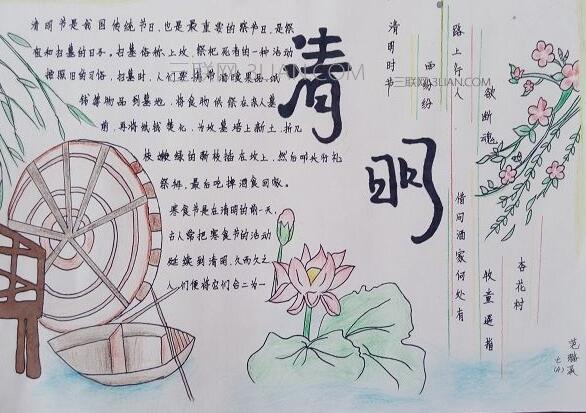 清明节是我国传统节日,也是最重要的祭祀节日,是祭
祖和扫墓的日子。扫墓俗称上坟,祭祀死者的一种活动
按照旧的习俗,扫墓时,人们要携带酒食果品、纸
钱等物品到墓地,将食物供祭在亲人墓
前,再将纸钱焚化,为坟墓培上新土,折几
枝嫩绿的新枝插在坟上,然后叩头行礼
祭拜,最后吃掉酒食回家。
寒食节是在清明的前一天,
古人常把寒食节的活动
延续到清明,久而久之
人们便将它们合二为一
清明
清明时节
雨纷纷
路上行人
欲断魂
借问酒家何处有
牧童遥指
杏花村
三联网 3LIAN.COM
三联网 3LIAN.COM